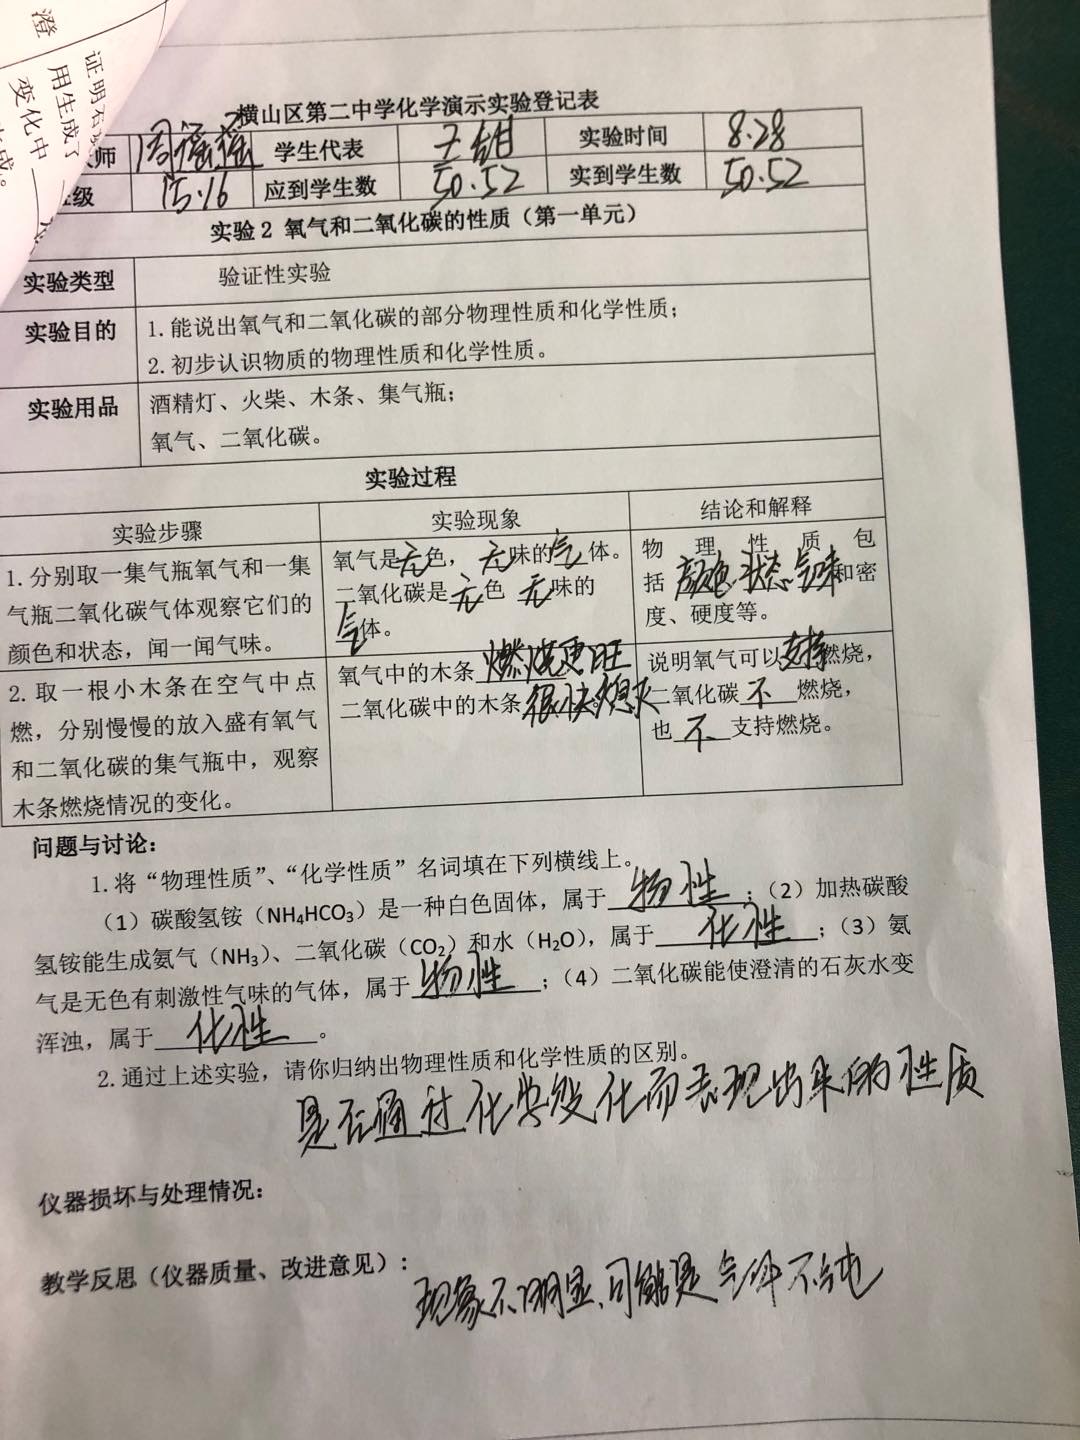 澄
证明石
用生成了
变化中
成。
横山区第二中学化学演示实验登记表
师 周瑶瑶 学生代表 王甜 实验时间 8.28
级 15.16 应到学生数 50.52 实到学生数 50.52
实验2 氧气和二氧化碳的性质（第一单元）
实验类型 验证性实验
实验目的 1.能说出氧气和二氧化碳的部分物理性质和化学性质；
2.初步认识物质的物理性质和化学性质。
实验用品 酒精灯、火柴、木条、集气瓶；
氧气、二氧化碳。
实验过程
实验步骤 实验现象 结论和解释
1.分别取一集气瓶氧气和一集
气瓶二氧化碳气体观察它们的
颜色和状态，闻一闻气味。
氧气是无色，无味的气体。
二氧化碳是无色 无味的
气体。
物理性质包
括 颜色.状态.气味和密
度、硬度等。
2.取一根小木条在空气中点
燃，分别慢慢的放入盛有氧气
和二氧化碳的集气瓶中，观察
木条燃烧情况的变化。
氧气中的木条 燃烧更旺
二氧化碳中的木条 很快熄灭。
说明氧气可以支持燃烧，
二氧化碳 不 燃烧，
也 不 支持燃烧。
问题与讨论：
1.将“物理性质”、“化学性质”名词填在下列横线上。
（1）碳酸氢铵（NH₄HCO₃）是一种白色固体，属于 物性 ；（2）加热碳酸
氢铵能生成氨气（NH₃）、二氧化碳（CO₂）和水（H₂O），属于 化性 ；（3）氨
气是无色有刺激性气味的气体，属于 物性 ；（4）二氧化碳能使澄清的石灰水变
浑浊，属于 化性 。
2.通过上述实验，请你归纳出物理性质和化学性质的区别。
是否通过化学变化而表现出来的性质
仪器损坏与处理情况：
教学反思（仪器质量、改进意见）：
现象不明显、可能是气体不纯